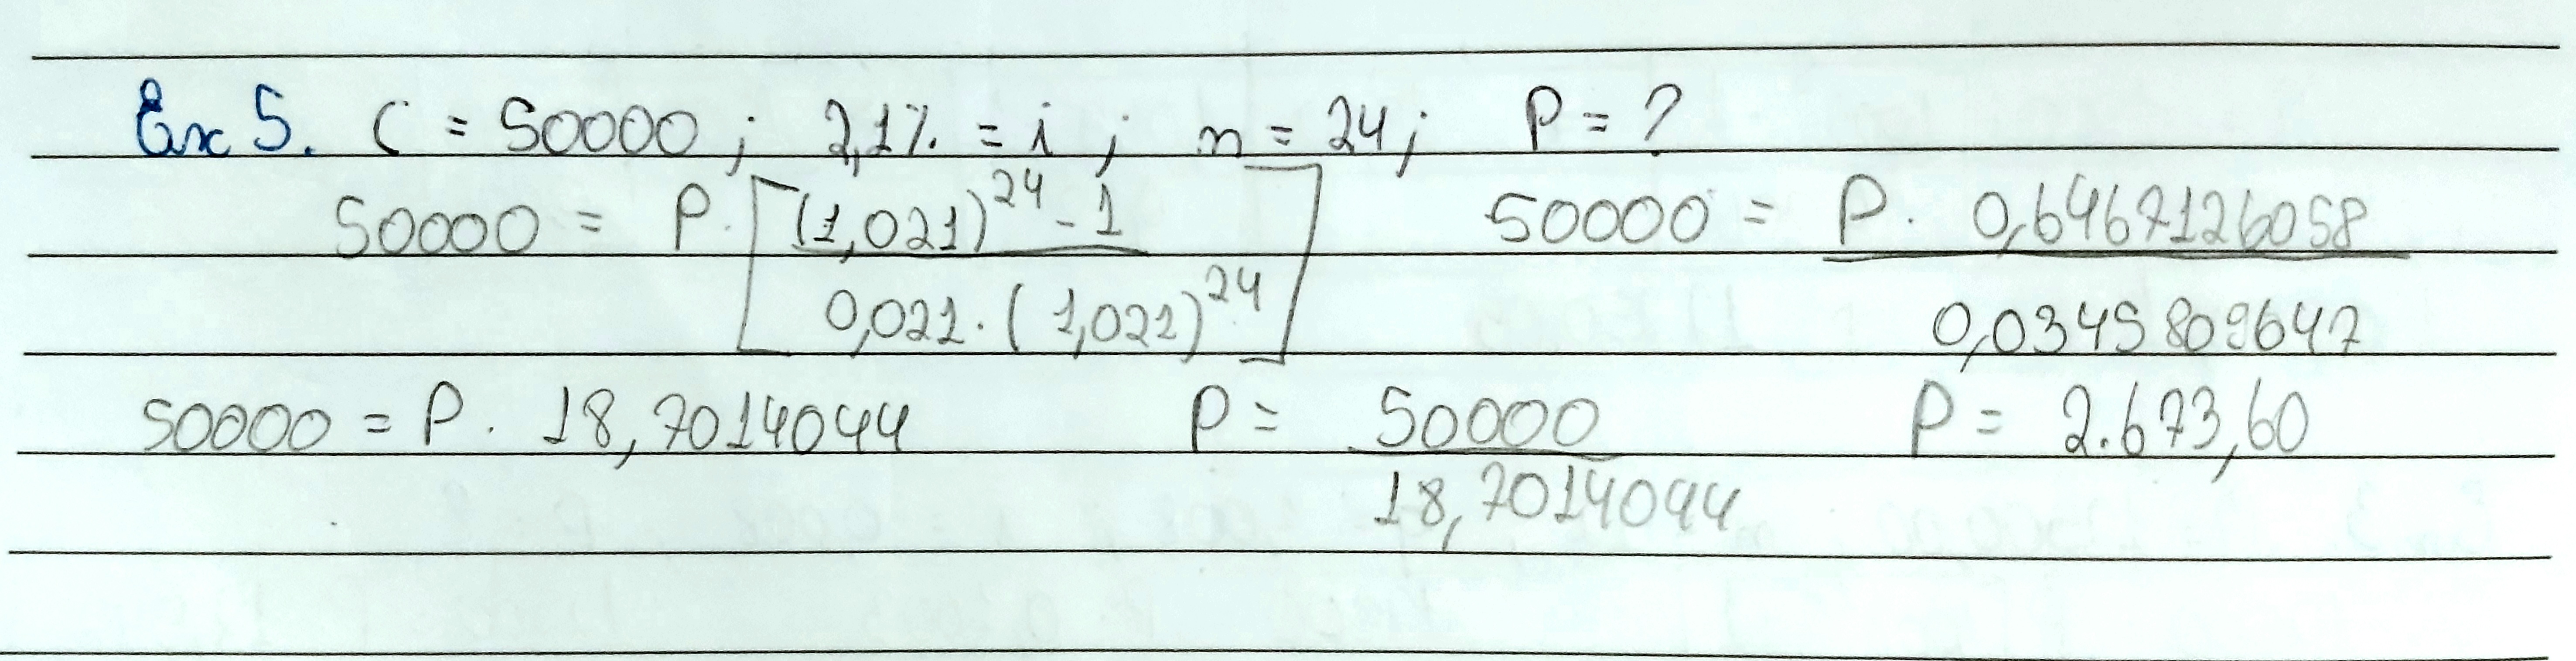 Ex 5. C = 50000 ; 2,1% = i ; n = 24 ; P = ?
50000 = P. [(1,021)^24 - 1 / 0,021 . (1,021)^24] 50000 = P. 0,6467126058 / 0,0345809647
50000 = P. 18,7014044 P = 50000 / 18,7014044 P = 2.673,60